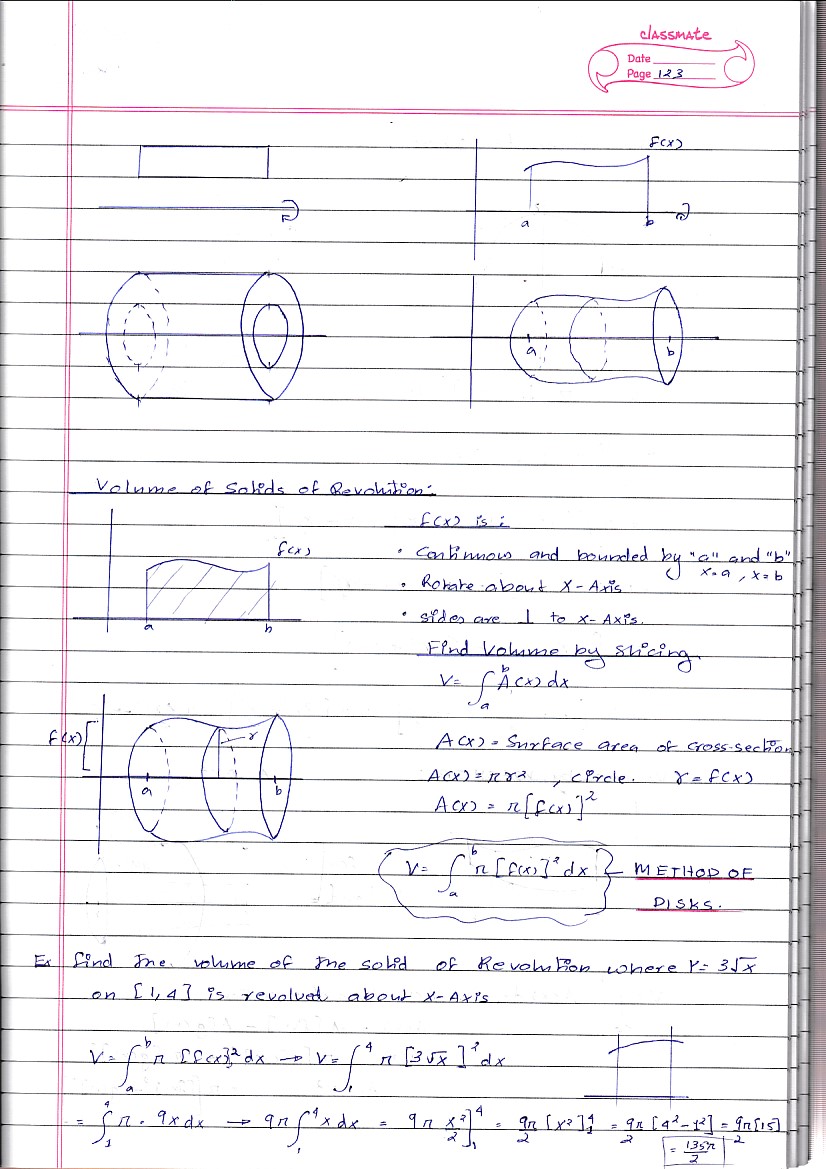 classmate
Date
Page 123
f(x)
a b
a b
Volume of Solids of Revolution:
f(x) is :
f(x)
• Continuous and bounded by "a" and "b"
x=a , x=b
• Rotate about X-Axis
• sides are ⊥ to x-Axis.
a b
Find Volume by slicing.
V= ∫ₐᵇ A(x) dx
f(x) r
A(x) = Surface area of cross-section
A(x) = πr² , circle. r = f(x)
a b
A(x) = π[f(x)]²
V= ∫ₐᵇ π [f(x)]² dx } METHOD OF
DISKS.
Ex Find the volume of the solid of Revolution where Y= 3√x
on [1,4] is revolved about X-Axis
V= ∫ₐᵇ π [f(x)]² dx → V= ∫₁⁴ π [3√x]² dx
= ∫₁⁴ π · 9x dx → 9π ∫₁⁴ x dx = 9π x²/2]₁⁴ = 9π/2 [x²]₁⁴ = 9π/2 [4²-1²] = 9π/2 [15]
= 135π/2